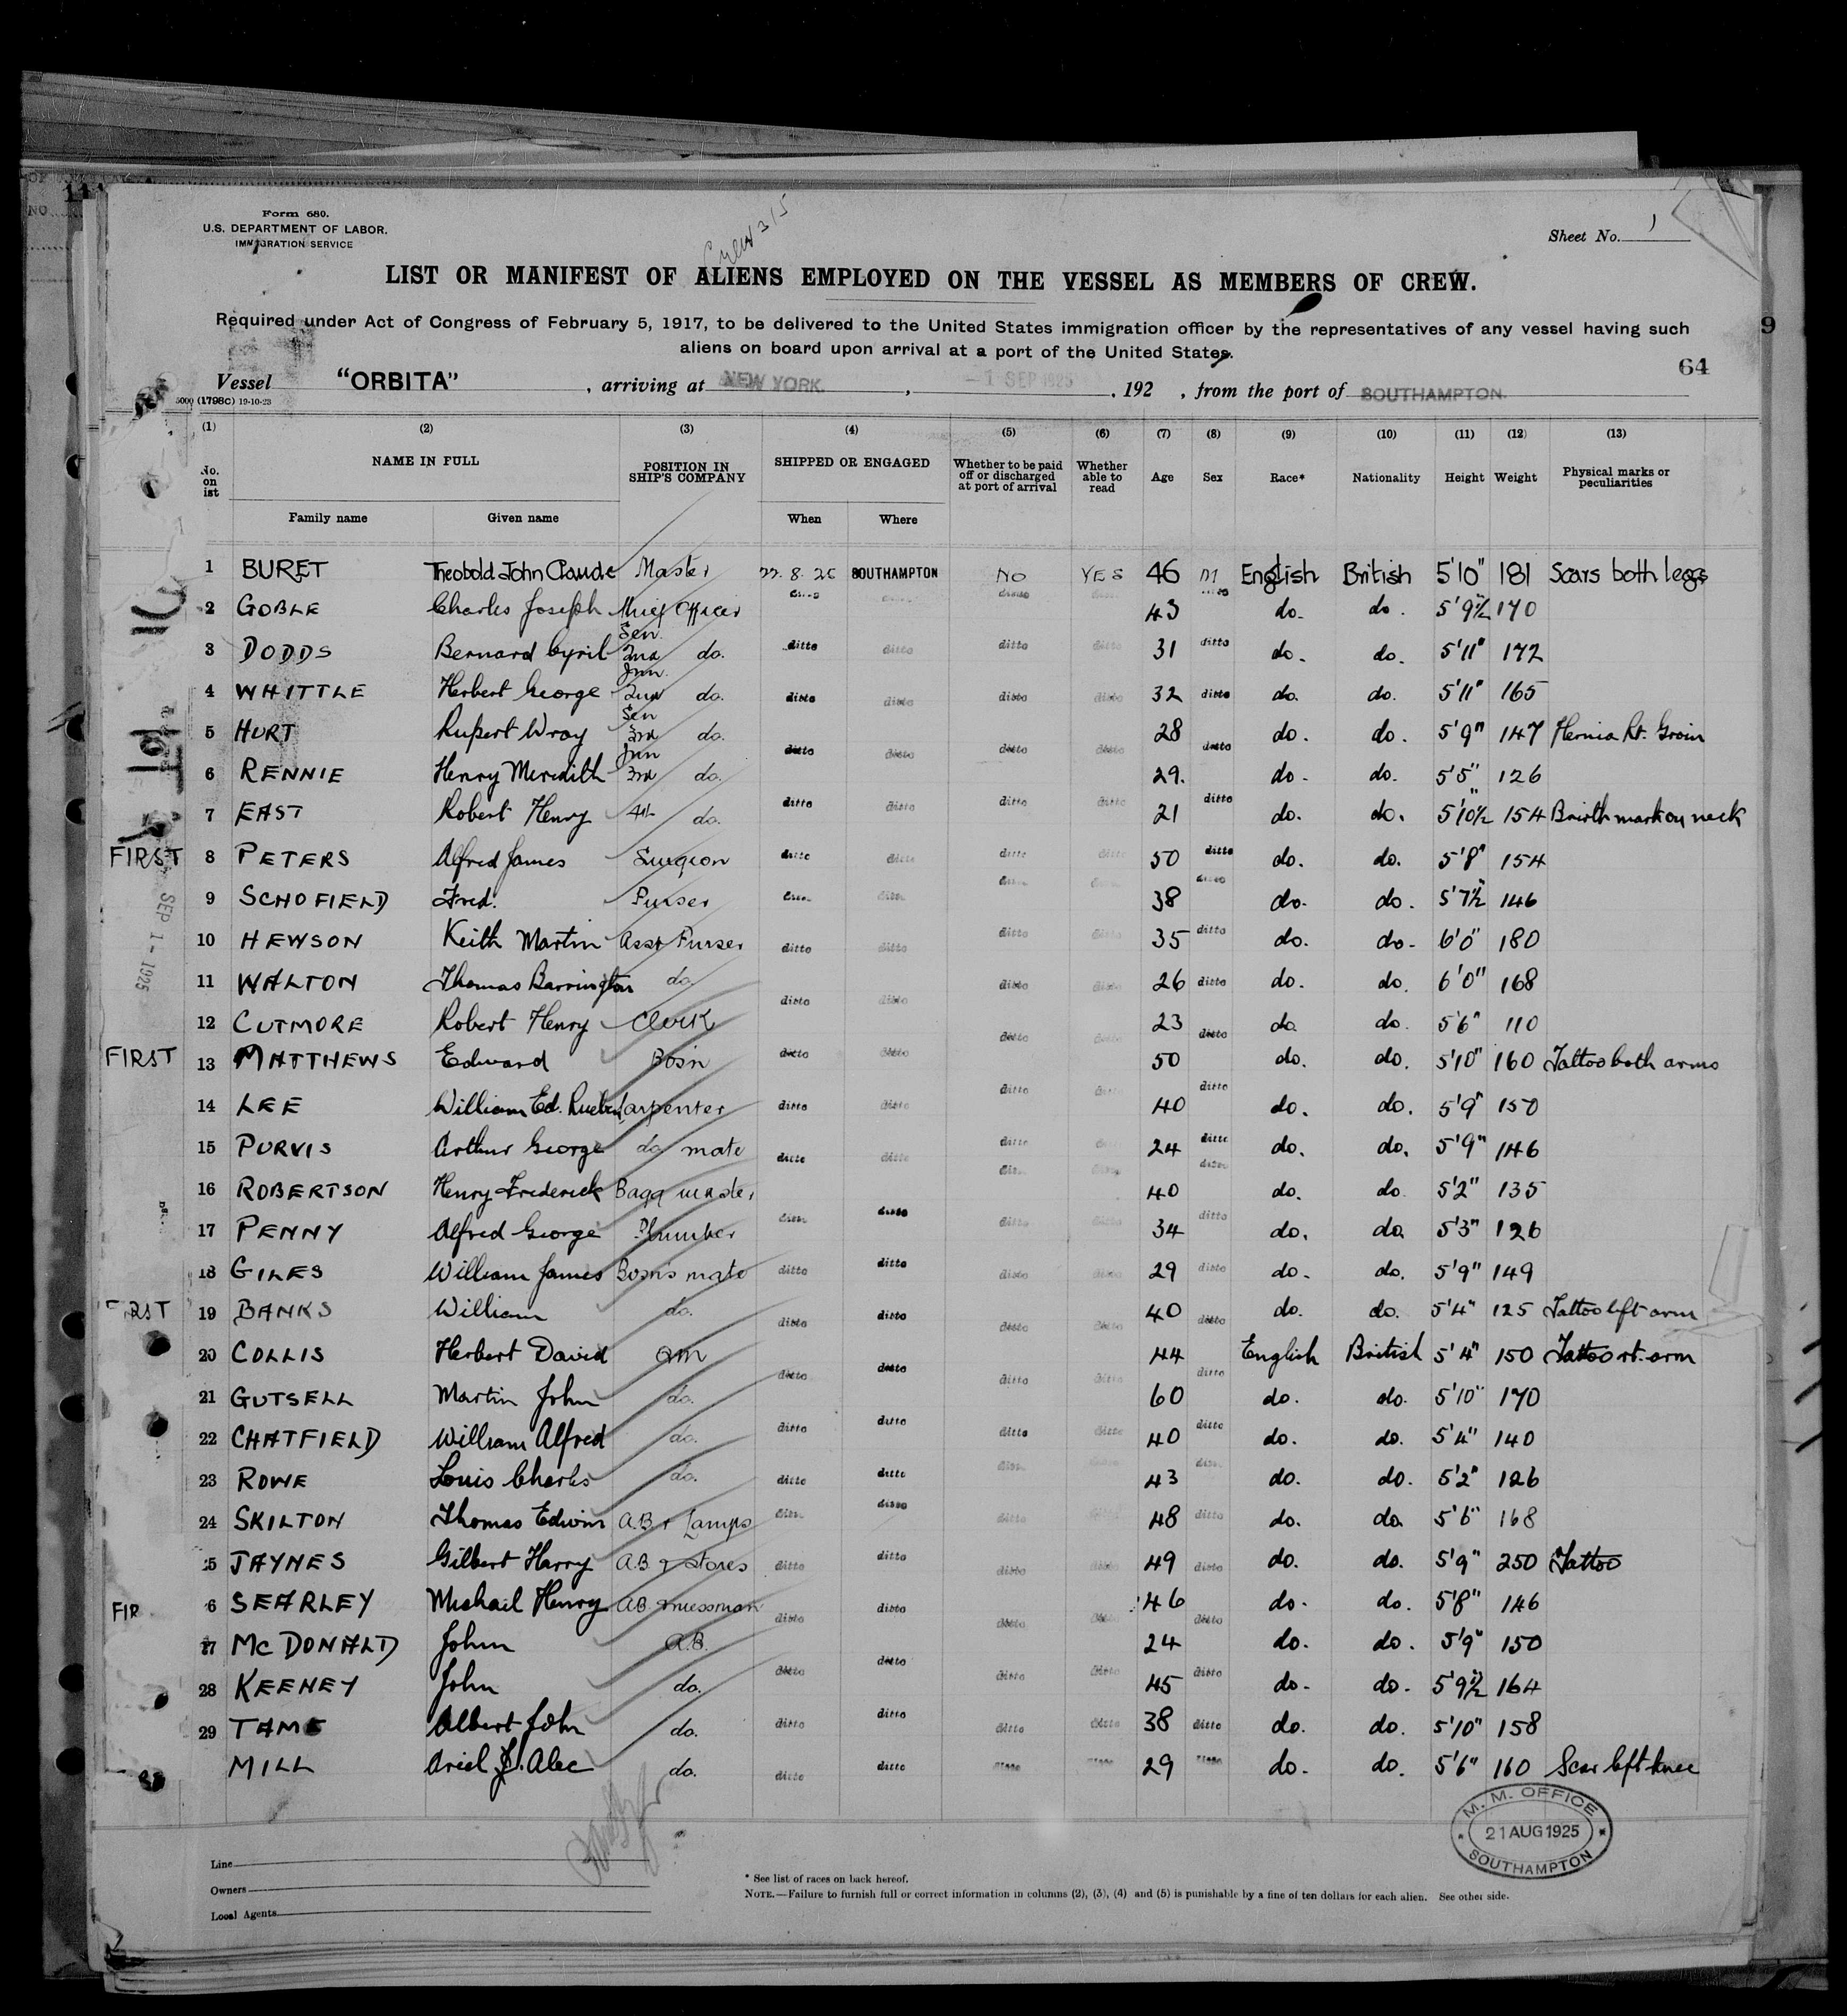 Form 680.
U.S. DEPARTMENT OF LABOR.
IMMIGRATION SERVICE
Crew 315
Sheet No. 1
LIST OR MANIFEST OF ALIENS EMPLOYED ON THE VESSEL AS MEMBERS OF CREW.
Required under Act of Congress of February 5, 1917, to be delivered to the United States immigration officer by the representatives of any vessel having such
aliens on board upon arrival at a port of the United States.
9
64
Vessel "ORBITA", arriving at NEW YORK, -1 SEP 1925, 192 , from the port of SOUTHAMPTON
5000 (1798C) 19-10-23
(1) (2) (3) (4) (5) (6) (7) (8) (9) (10) (11) (12) (13)
No. on list NAME IN FULL POSITION IN SHIP'S COMPANY SHIPPED OR ENGAGED Whether to be paid off or discharged at port of arrival Whether able to read Age Sex Race* Nationality Height Weight Physical marks or peculiarities
Family name Given name When Where
1 BURET Theobold John Claude Master 22.8.25 SOUTHAMPTON NO YES 46 M English British 5'10" 181 Scars both legs
2 GOBLE Charles Joseph Chief Officer ditto ditto ditto ditto 43 ditto do. do. 5'9½" 170
3 DODDS Bernard Cyril Sen. 2nd do. ditto ditto ditto ditto 31 ditto do. do. 5'11" 172
4 WHITTLE Herbert George Jun. 2nd do. ditto ditto ditto ditto 32 ditto do. do. 5'11" 165
5 HURT Rupert Wray Sen 3rd do. ditto ditto ditto ditto 28 ditto do. do. 5'9" 147 Hernia Rt. Groin
6 RENNIE Henry Meredith Jun 3rd do. 29. do. do. 5'5" 126
7 EAST Robert Henry 4th do. ditto ditto ditto ditto 21 ditto do. do. 5'10½" 154 Brirth mark on neck
FIRST 8 PETERS Alfred James Surgeon ditto ditto ditto ditto 50 ditto do. do. 5'8" 154
9 SCHOFIELD Fred. Purser ditto ditto ditto ditto 38 ditto do. do. 5'7½" 146
10 HEWSON Keith Martin Asst Purser ditto ditto ditto ditto 35 ditto do. do. 6'0" 180
SEP 1 - 1925
11 WALTON Thomas Barrington do. ditto ditto ditto ditto 26 ditto do. do. 6'0" 168
12 CUTMORE Robert Henry Clerk ditto ditto 23 ditto do. do. 5'6" 110
FIRST 13 MATTHEWS Edward Bosn ditto ditto 50 do. do. 5'10" 160 Tattoo both arms
14 LEE William Ed. Rueben Carpenter ditto ditto ditto ditto 40 ditto do. do. 5'9" 150
15 PURVIS Arthur George do mate ditto ditto ditto ditto 24 ditto do. do. 5'9" 146
16 ROBERTSON Henry Frederick Bagg master ditto ditto 40 ditto do. do. 5'2" 135
17 PENNY Alfred George Plumber ditto ditto ditto ditto 34 ditto do. do. 5'3" 126
18 GILES William James Bosn's mate ditto ditto ditto ditto 29 ditto do. do. 5'9" 149
FIRST 19 BANKS William do. ditto ditto ditto ditto 40 ditto do. do. 5'4" 125 Tattoo left arm
20 COLLIS Herbert David QM ditto ditto ditto ditto 44 ditto English British 5'4" 150 Tattoo rt. arm
21 GUTSELL Martin John do. 60 do. do. 5'10" 170
22 CHATFIELD William Alfred do. ditto ditto ditto ditto 40 ditto do. do. 5'4" 140
23 ROWE Louis Charles do. ditto ditto ditto ditto 43 ditto do. do. 5'2" 126
24 SKILTON Thomas Edwin A.B. & Lamps ditto ditto ditto 48 ditto do. do. 5'6" 168
25 JAYNES Gilbert Harry A.B. & Stores ditto ditto ditto ditto 49 ditto do. do. 5'9" 250 Tattoo
FIR 6 SEARLEY Michael Henry AB & messman ditto ditto ditto ditto 46 ditto do. do. 5'8" 146
27 McDONALD John A.B. ditto 24 do. do. 5'9" 150
28 KEENEY John do. ditto ditto ditto 45 ditto do. do. 5'9½" 164
29 TAME Albert John do. ditto ditto ditto ditto 38 ditto do. do. 5'10" 158
MILL Ariel J. Alec do. ditto ditto ditto ditto 29 ditto do. do. 5'6" 160 Scar left knee
M. M. OFFICE
21 AUG 1925
SOUTHAMPTON
Line
Owners
Local Agents
* See list of races on back hereof.
NOTE.—Failure to furnish full or correct information in columns (2), (3), (4) and (5) is punishable by a fine of ten dollars for each alien. See other side.